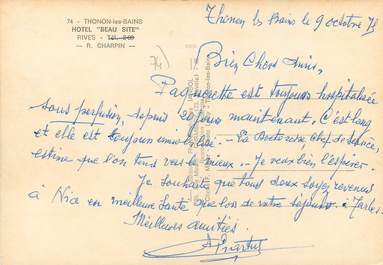 74 - THONON-les-BAINS
HOTEL "BEAU SITE"
RIVES - Tél. 2-69
— R. CHARPIN —
Thonon les Bains le 9 octobre 73
Bien Chers Amis,
Paquerette est toujours hospitalisée
sous perfusion, depuis 20 jours maintenant. C'est long
et elle est toujours immobilisée. - La Doctoresse, Chef de Service,
estime que l'on tend vers le mieux. - Je veux bien l'espérer.
Je souhaite que tous deux soyez revenus
à Nice en meilleure santé que lors de votre séjour à Tarbes.
Meilleures amitiés.